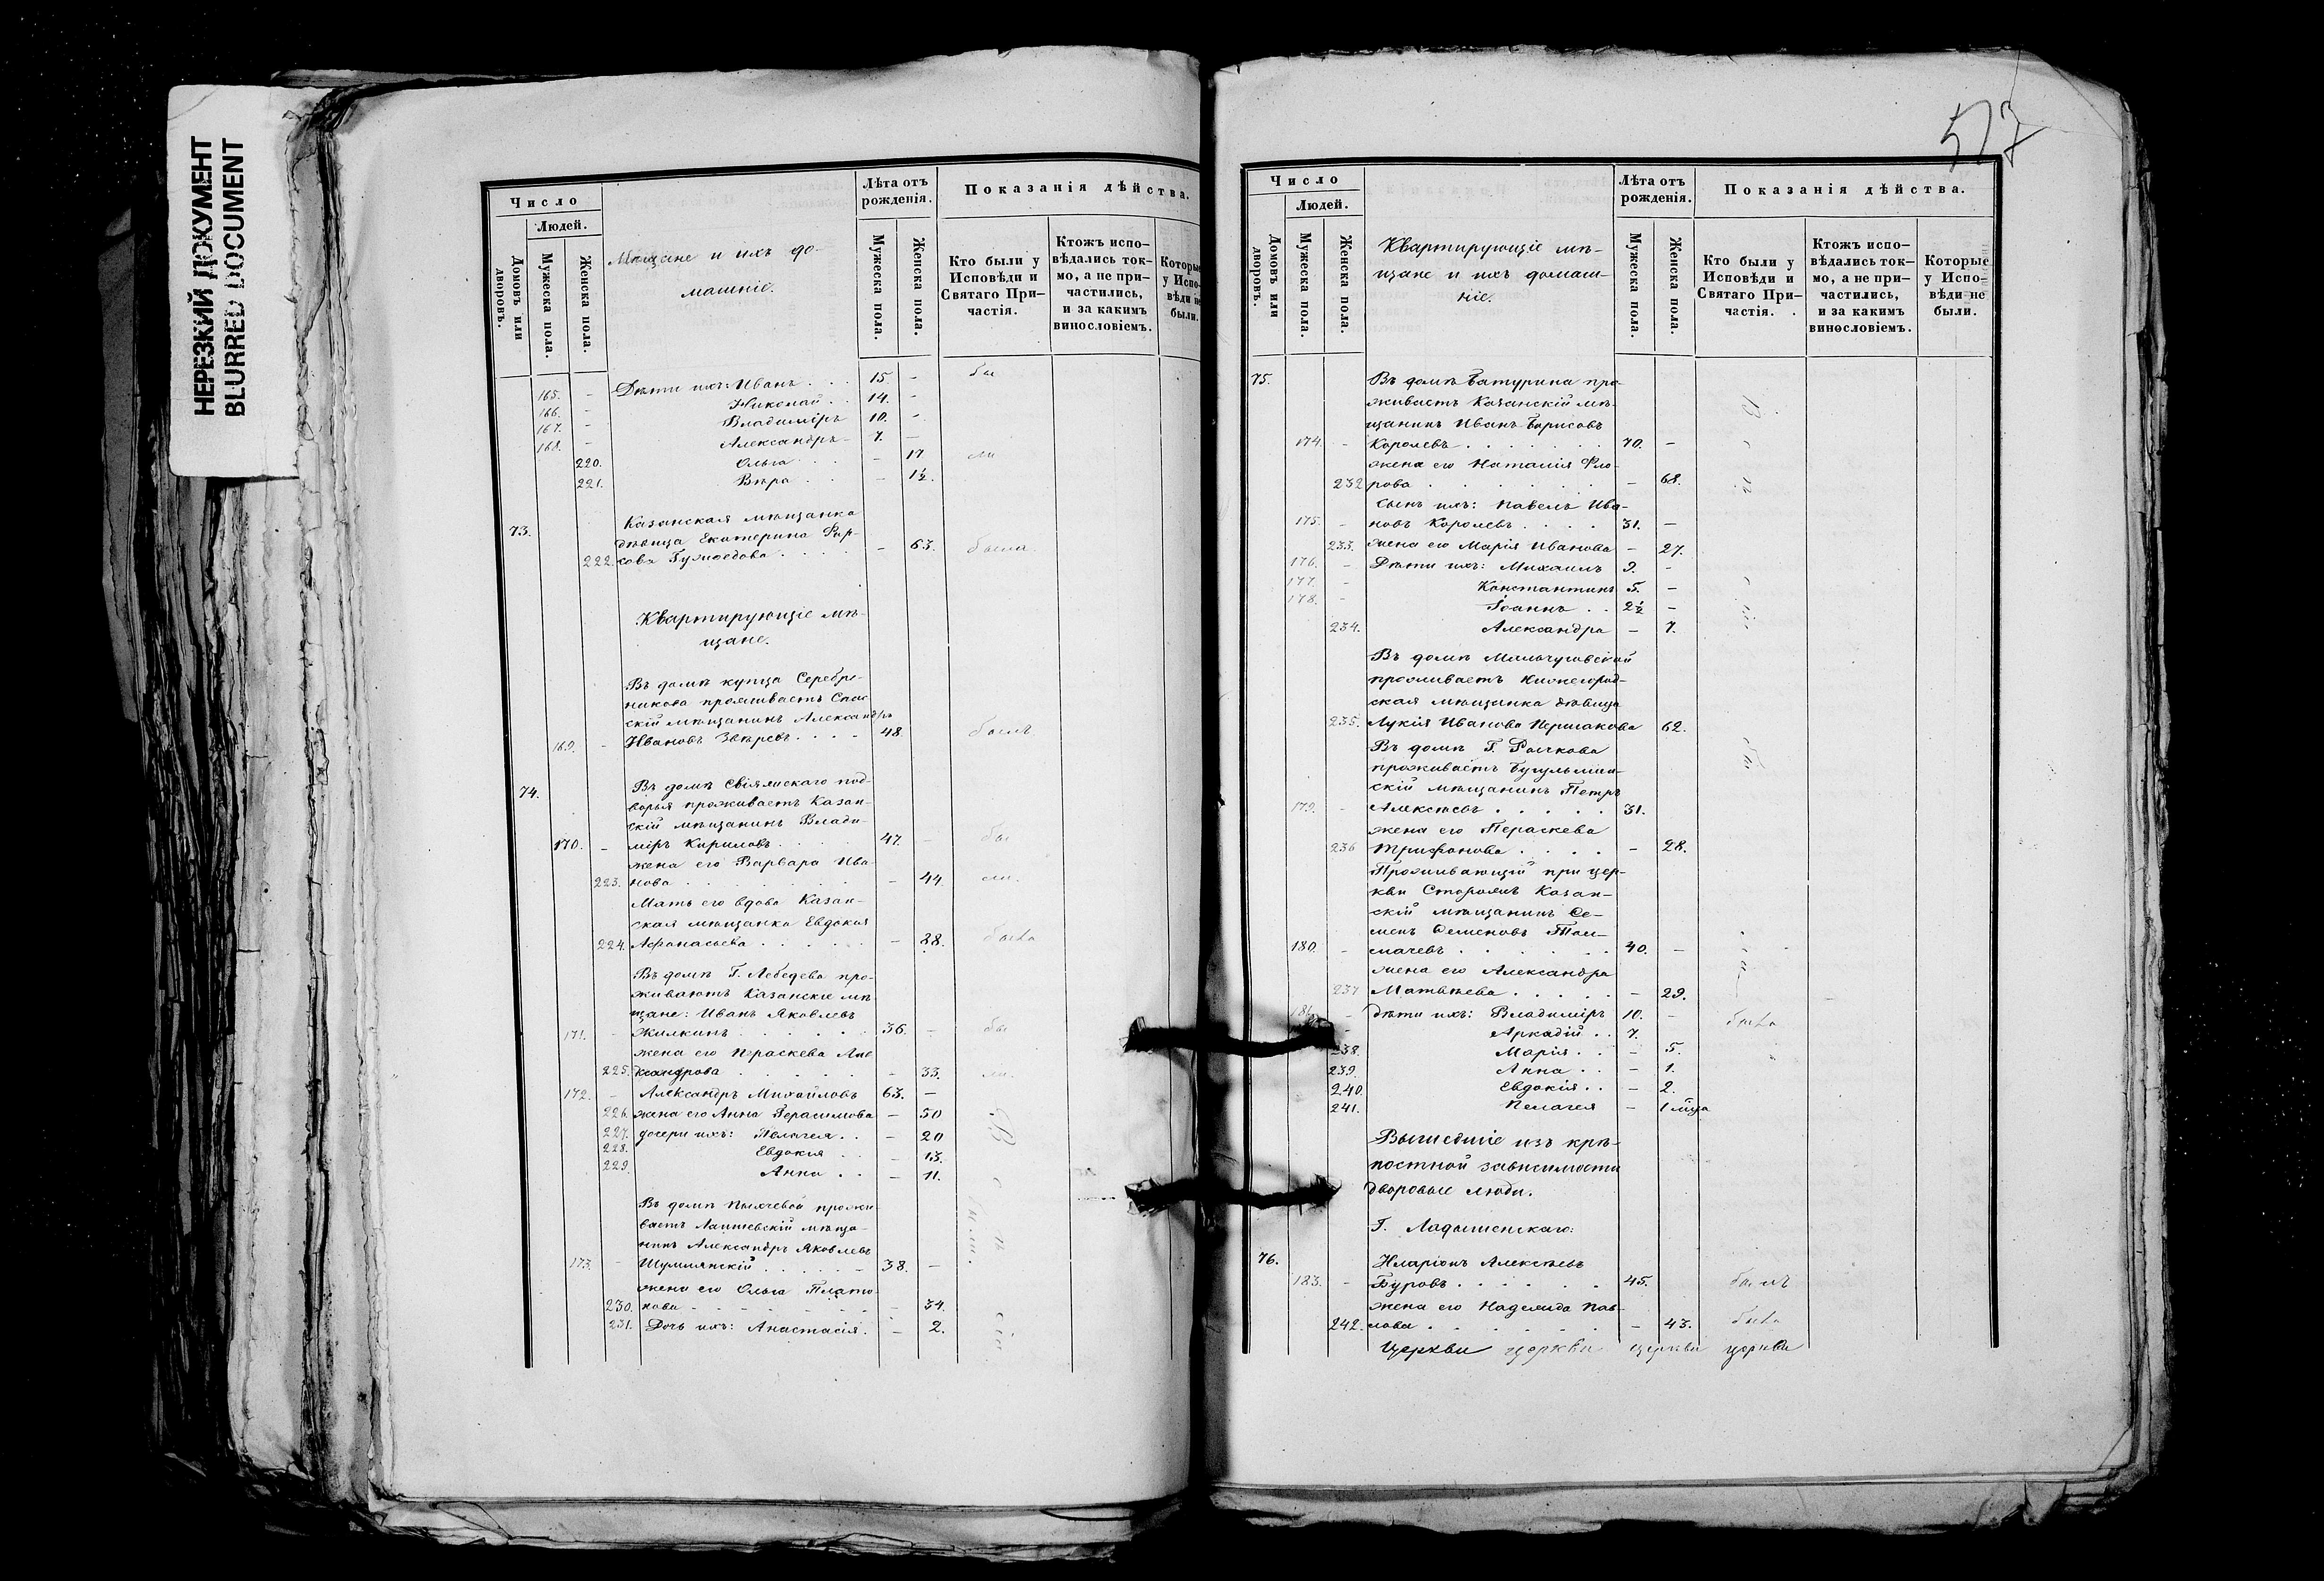 НЕРЕЗКИЙ ДОКУМЕНТ
BLURRED DOCUMENT
Число
Людей.
Домовъ или дворовъ.
Мужеска пола.
Женска пола.
Мещане и ихъ до-
машніе.
Лѣта отъ рожденія.
Мужеска пола.
Женска пола.
Показанія дѣйства.
Кто были у Исповѣди и Святаго При-частія.
Ктожъ испо-вѣдались ток-мо, а не при-частились, и за какимъ винословіемъ.
Которые у Испо-вѣди не были.
165. - Дѣти ихъ: Иванъ . . . 15 - бы
166. - Николай . . 14. -
167. - Владиміръ 10. -
168. - Александръ - 7. -
220. Ольга . . . - 17 ли
221. Вѣра . . - 1½.
73. Казанская мѣщанка
дѣвица Екатерина Фир-
222. сова . . . . - 63. была.
Квартирующіе мѣ-
щане.
Въ домѣ купца Серебре-
никова проживаетъ Спас
скій мѣщанинъ Александръ
169. - Ивановъ Звѣревъ . . . - 48. былъ
74. Въ домѣ Свіяжскаго под-
ворья проживаетъ Казан-
скій мѣщанинъ Влади-
170. - міръ Кириловъ . . . . 47. - бы
жена его Варвара Ива-
223. нова . . . . . - 44. ли.
Мать его вдова Казан-
ская мѣщанка Евдокія
224. Афанасьева . . . . . - 88. была
Въ домѣ Г. Лебедева про-
живаютъ Казанскіе мѣ
щане: Иванъ Яковлевъ
171. - Жилкинъ . . . . . . 36. - бы
жена его Праскева Але
225. ксандрова . . . . . - 33. ли.
172. - Александръ Михайловъ 63. -
226. жена его Анна Герасимова - 50
227. дочери ихъ: Пелагея . . - 20
228. Евдокія . . - 13.
229. Анна . . - 11.
Въ домѣ прожи
ваетъ Лаишевскій мѣща-
нинъ Александръ Яковлевъ
173. - Шумлянскій . . . . . - 38. -
жена его Ольга Плато
230. нова - - - - - - - 34.
231. Дочь ихъ: Анастасія. - 2.
577
Число
Людей.
Домовъ или дворовъ.
Мужеска пола.
Женска пола.
Квартирующіе мѣ-
щане и ихъ домаш-
ніе.
Лѣта отъ рожденія.
Мужеска пола.
Женска пола.
Показанія дѣйства.
Кто были у Исповѣди и Святаго При-частія.
Ктожъ испо-вѣдались ток-мо, а не при-частились, и за какимъ винословіемъ.
Которые у Испо-вѣди не были.
75. Въ домѣ Батурина про-
живаетъ Казанскій мѣ-
щанинъ Иванъ Борисовъ
174. - Королевъ . . . . . . 70. -
жена его Наталія Фло-
232 рова . . . . . . - 68.
Сынъ ихъ: Павелъ Ива-
175. - новъ Королевъ . . . . 31. -
233. жена его Марія Иванова - 27.
176. - Дѣти ихъ: Михаилъ 9. -
177. - Константинъ 5. -
178. - Іоаннъ . . 2½ -
234. Александра - 7.
Въ домѣ
проживаетъ Нижегород-
ская мѣщанка дѣвица
235. Лукія Иванова Першакова 62.
Въ домѣ Г. Рычкова
проживаетъ Бугульмин-
скій мѣщанинъ Петръ
179. - Алексѣевъ . . . . . 31.
жена его Параскева
236 Трифонова . . . . - 28.
Проживающій при цер-
кви Сторожъ Казан-
скій мѣщанинъ Се-
менъ Семеновъ Тол-
180. - мачевъ . . . . . . 40. -
жена его Александра
237 Матвѣева . . . . . - 29.
181. - дѣти ихъ: Владиміръ 10. - была
- Аркадій . . 7.
238. Марія . . - 5.
239. Анна . . - 1.
240. Евдокія . . - 2.
241. Пелагея - 1 мца
Вышедшіе изъ крѣ-
постной зависимости
дворовые люди.
Г. Ладыженскаго:
76. Иларіонъ Алексѣевъ
183. - Буровъ . . . . . . 45. былъ
жена его Надежда Пав-
242. лова . . . . . . - 43. была
Церкви церкви церкви церкви